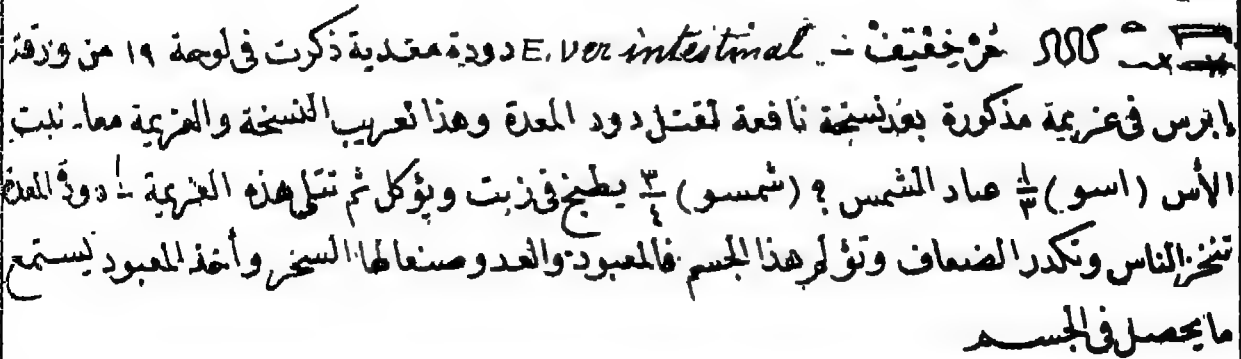 خِفْتِفْ – E. Ver intestinal دودة معدية ذكرت فى لوحة ١٩ من ورقة
إبرس فى عزيمة مذكورة بعد نسخة نافعة لقتل دود المعدة وهذا تعريب النسخة والعزيمة معا. نبت
الأس (اسو) ١/٣ عباد الشمس ؟ (شمسو) ٣/٤ يطبخ فى زيت ويؤكل ثم تتلى هذه العزيمة – دودة المعدة
تنخز الناس وتكدر الضعاف وتؤلم هذا الجسم فالمعبود والعدو صنعا لها السحر وأخذ المعبود يستمع
ما يحصل فى الجسم